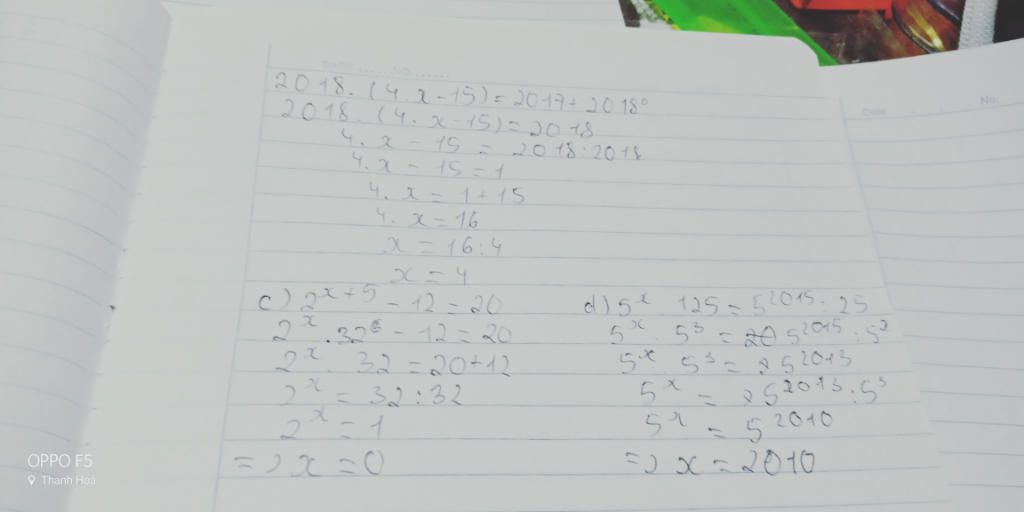 DATE ...... NO. ......
2018.(4.x-15)=2017+2018⁰
2018.(4.x-15)=2018
4.x-15=2018:2018
4.x-15=1
4.x=1+15
4.x=16
x=16:4
x=4
c) 2^{x+5}-12=20
2^x.32-12=20
2^x.32=20+12
2^x=32:32
2^x=1
=> x=0
d) 5^x.125=5^{2015}:25
5^x.5^3=5^{2015}:5^2
5^x.5^3=5^{2013}
5^x=5^{2013}:5^3
5^x=5^{2010}
=> x=2010
Date No.
OPPO F5
Thanh Hoá